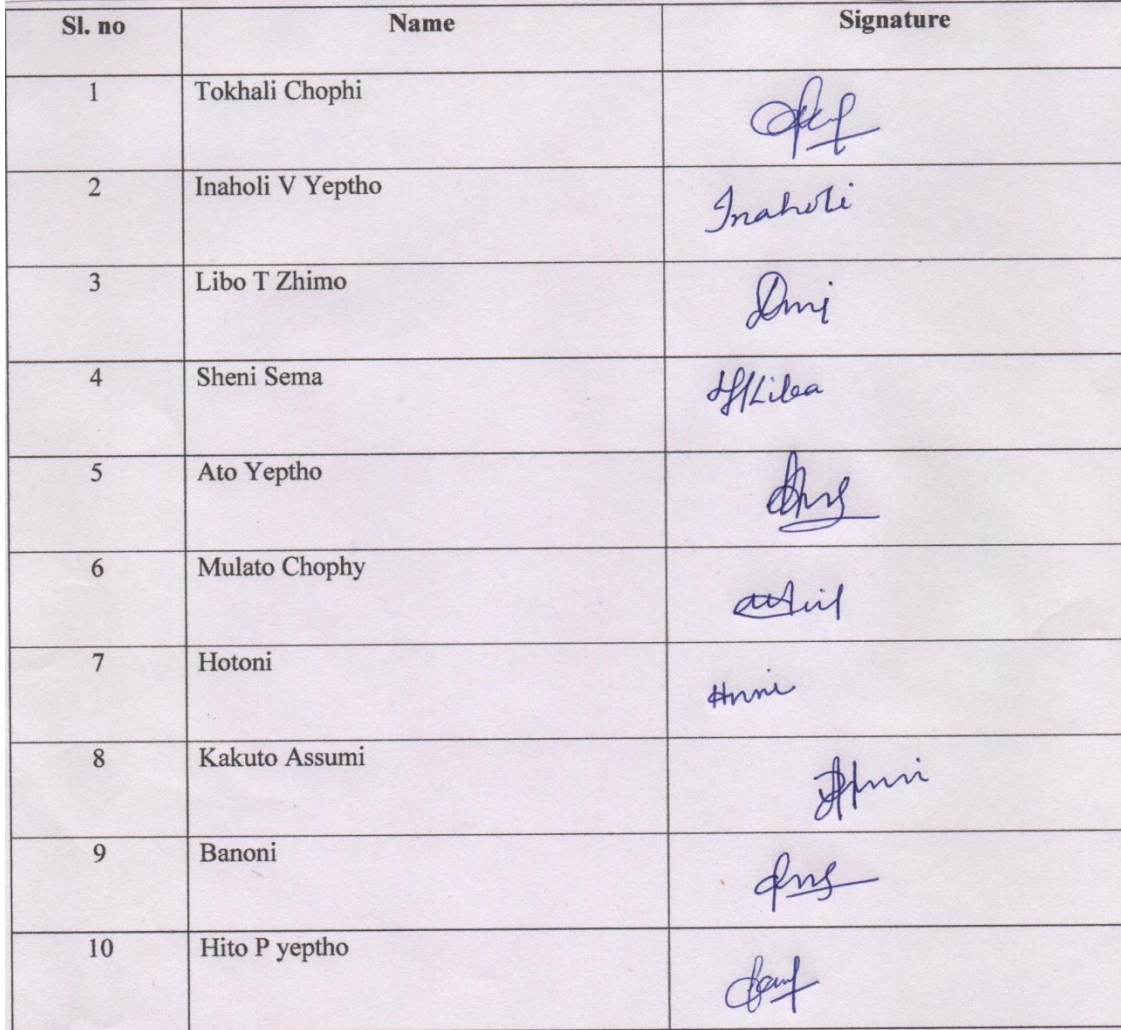 Sl. no Name Signature
1 Tokhali Chophi
2 Inaholi V Yeptho Inaholi
3 Libo T Zhimo
4 Sheni Sema
5 Ato Yeptho
6 Mulato Chophy
7 Hotoni
8 Kakuto Assumi
9 Banoni
10 Hito P yeptho